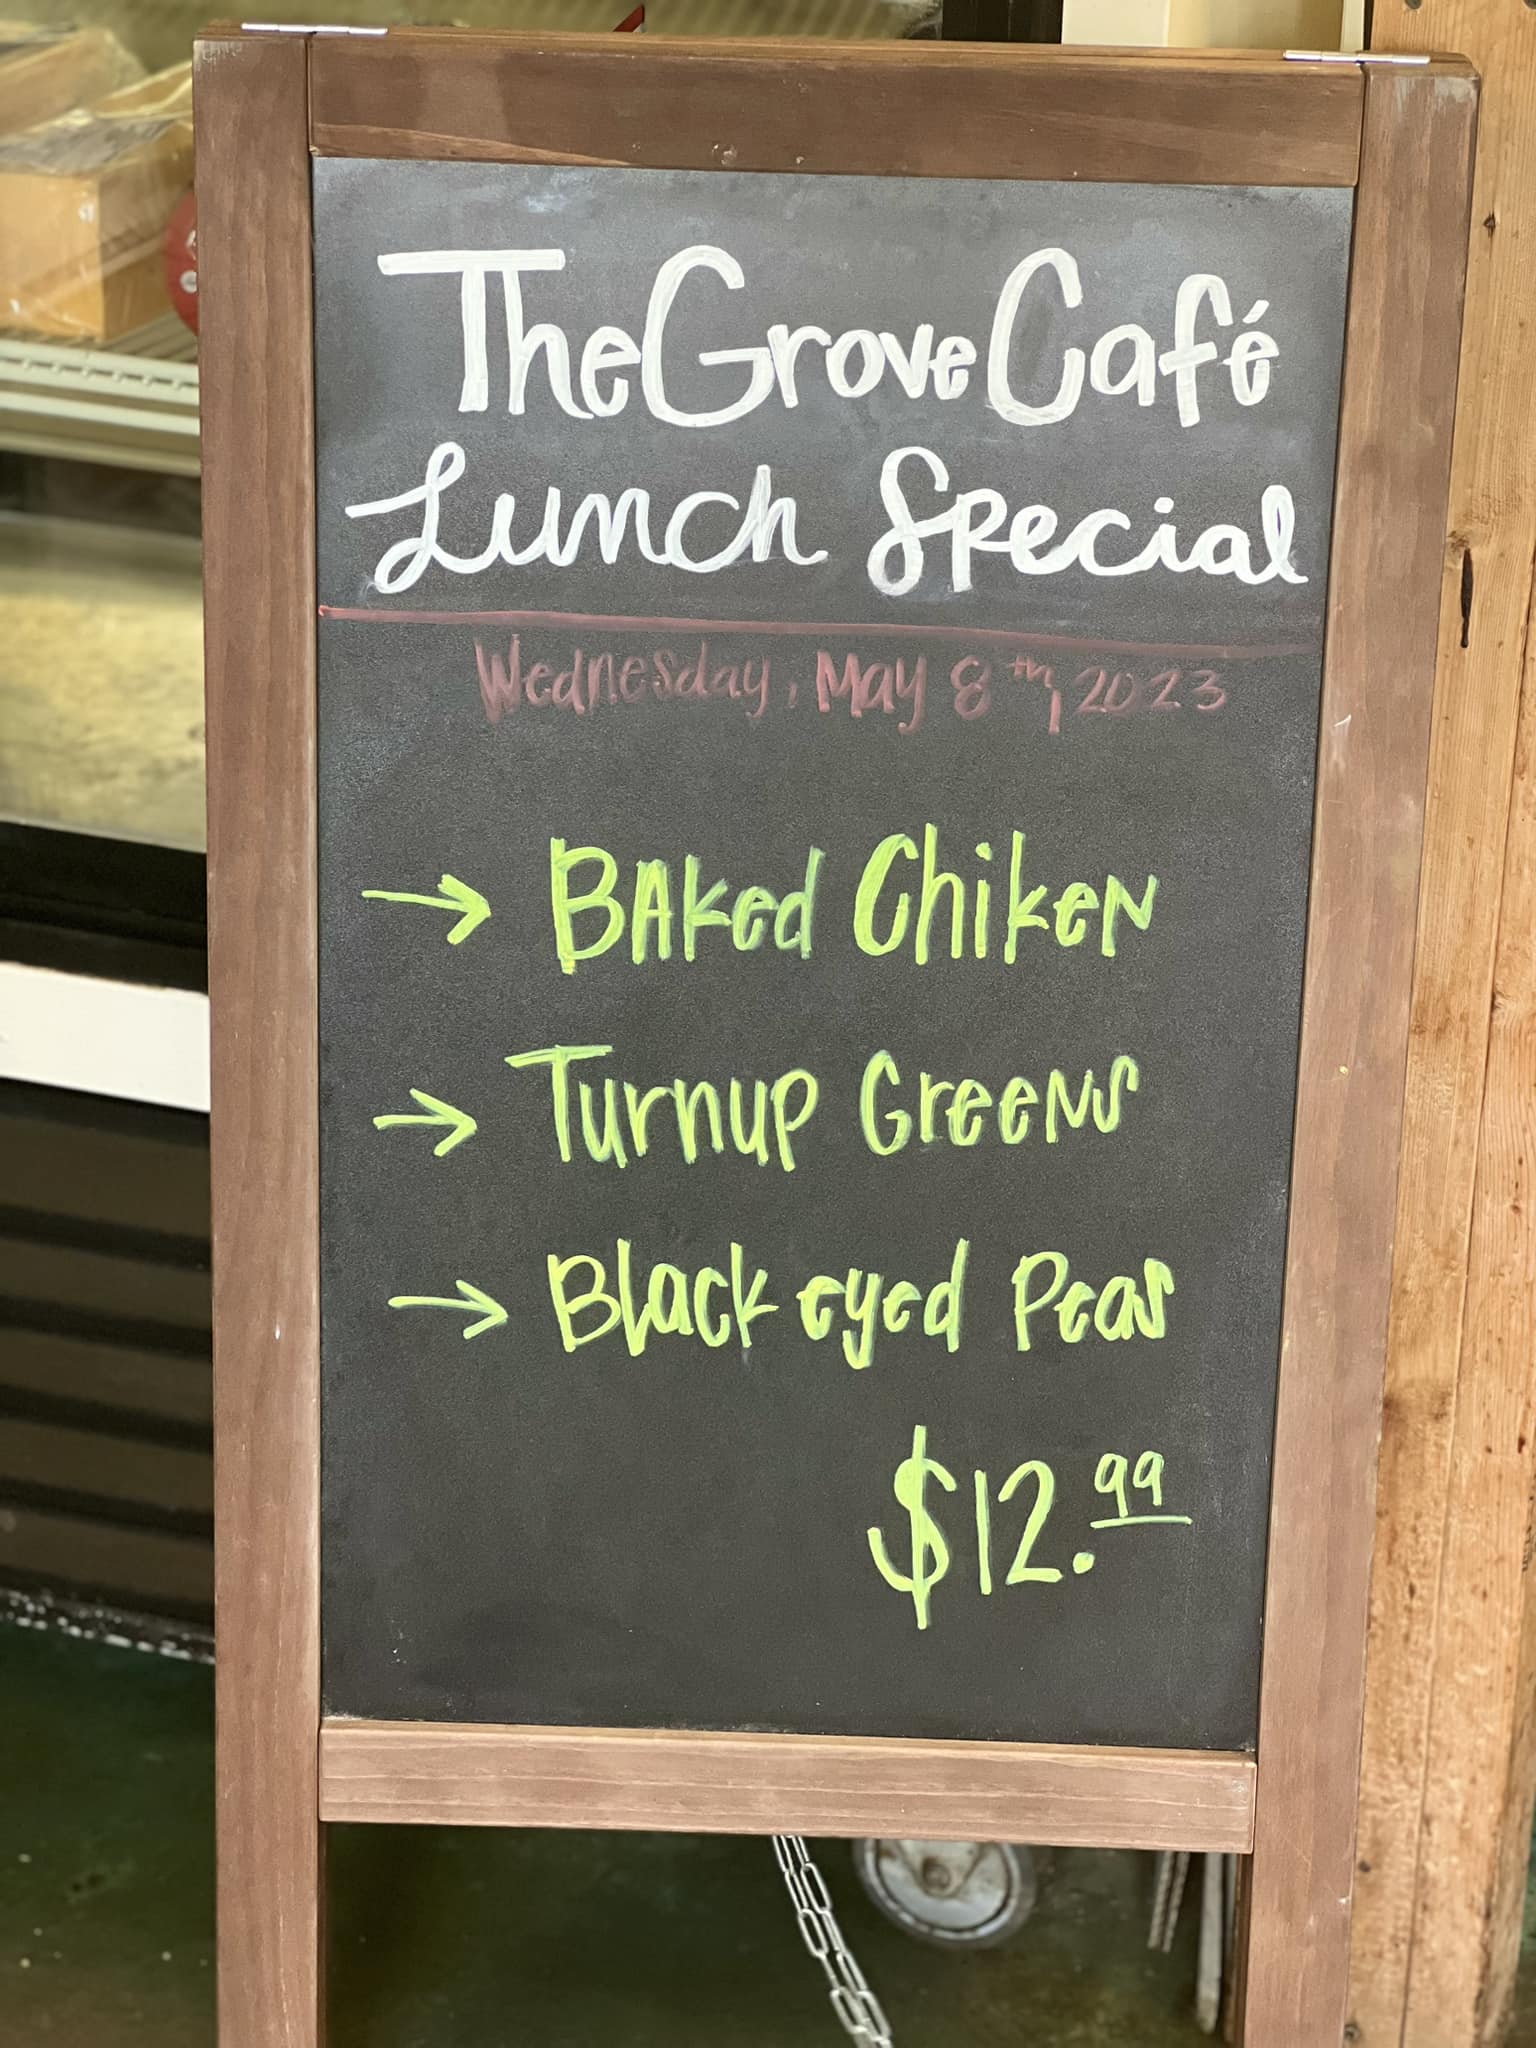 The Grove Café
Lunch Special
Wednesday, May 8th, 2023
→ BAked Chiken
→ Turnup Greens
→ Black eyed Peas
$12.99